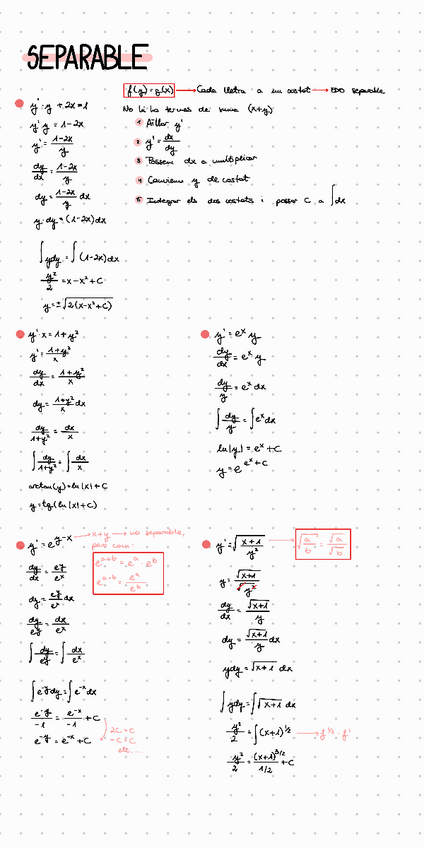 SEPARABLE
f(y)=g(x) → Cada lletra a un costat → EDO separable
No hi ha termes de suma (x+y)
1 Aïllar y'
2 y' = dx/dy
3 Passem dx a multiplicar
4 Canviem y de costat
5 Integrar els dos costats i posar C a ∫dx
y'·y + 2x = 1
y'·y = 1-2x
y' = (1-2x)/y
dy/dx = (1-2x)/y
dy = (1-2x)/y dx
y·dy = (1-2x)dx
∫ydy = ∫(1-2x)dx
y²/2 = x-x²+C
y = ±√(2(x-x²+C))
y'·x = 1+y²
y' = (1+y²)/x
dy/dx = (1+y²)/x
dy = (1+y²)/x dx
dy/(1+y²) = dx/x
∫dy/(1+y²) = ∫dx/x
arctan(y) = ln|x|+C
y = tg(ln|x|+C)
y' = eˣ y
dy/dx = eˣ y
dy/y = eˣ dx
∫dy/y = ∫eˣdx
ln|y| = eˣ+C
y = e^(eˣ+C)
y' = e^(y-x) → x+y → no separable,
però com
e^(a+b) = e^a · e^b
e^(a-b) = e^a/e^b
dy/dx = e^y/e^x
dy = e^y/e^x dx
dy/e^y = dx/e^x
∫dy/e^y = ∫dx/e^x
∫e^-y dy = ∫e^-x dx
e^-y/-1 = e^-x/-1 + C
e^-y = e^-x + C
2C = C
-C = C
etc...
y' = √((x+1)/y²) → √(a/b) = √a/√b
y' = √(x+1)/√y²
dy/dx = √(x+1)/y
dy = √(x+1)/y dx
ydy = √(x+1) dx
∫ydy = ∫√(x+1) dx
y²/2 = ∫(x+1)^1/2 → f^1/2 · f'
y²/2 = (x+1)^3/2/1/2 + C